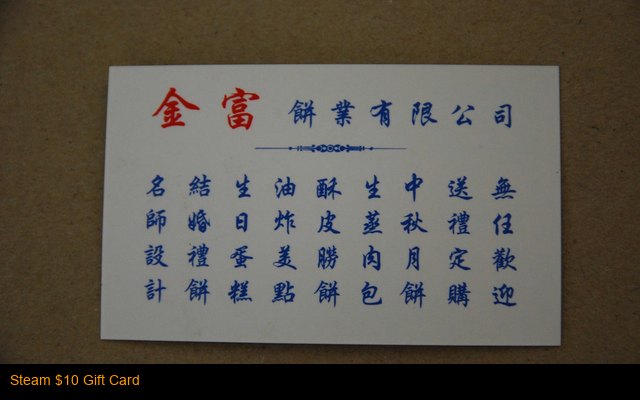 金富 餅業有限公司
名師設計
結婚禮餅
生日蛋糕
油炸美點
酥皮勝餅
生蒸肉包
中秋月餅
送禮定購
無任歡迎
Steam $10 Gift Card